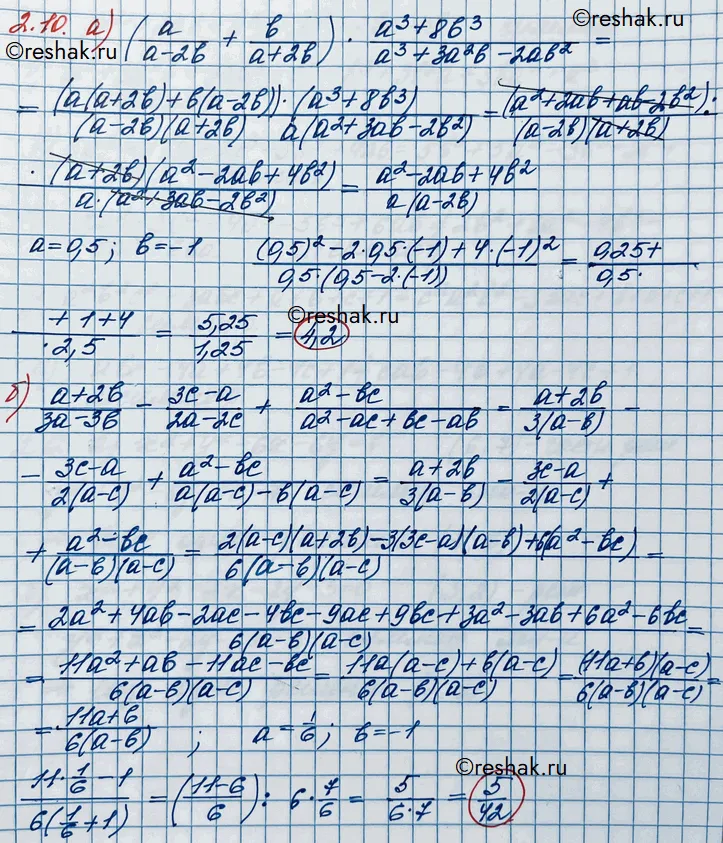 ©reshak.ru
©reshak.ru
2.10. а) (a/(a-2b) + b/(a+2b)) · (a³+8b³)/(a³+3a²b-2ab²) =
= (a(a+2b)+b(a-2b))·(a³+8b³)/((a-2b)(a+2b) a(a²+3ab-2b²)) = (a²+2ab+ab-2b²)/((a-2b)(a+2b)) ·
· (a+2b)(a²-2ab+4b²)/(a·(a²+3ab-2b²)) = (a²-2ab+4b²)/(a(a-2b))
a=0,5; b=-1 ((0,5)²-2·0,5·(-1)+4·(-1)²)/(0,5·(0,5-2·(-1))) = (0,25+)/(0,5·)
(+1+4)/(·2,5) = 5,25/1,25 = 4,2
©reshak.ru
б) (a+2b)/(3a-3b) - (3c-a)/(2a-2c) + (a²-bc)/(a²-ac+bc-ab) = (a+2b)/(3(a-b)) -
- (3c-a)/(2(a-c)) + (a²-bc)/(a(a-c)-b(a-c)) = (a+2b)/(3(a-b)) - (3c-a)/(2(a-c)) +
+ (a²-bc)/((a-b)(a-c)) = (2(a-c)(a+2b)-3(3c-a)(a-b)+6(a²-bc))/(6(a-b)(a-c)) =
= (2a²+4ab-2ac-4bc-9ac+9bc+3a²-3ab+6a²-6bc)/(6(a-b)(a-c)) =
= (11a²+ab-11ac-bc)/(6(a-b)(a-c)) = (11a(a-c)+b(a-c))/(6(a-b)(a-c)) = ((11a+b)(a-c))/(6(a-b)(a-c)) =
= (11a+b)/(6(a-b)) ; a=1/6; b=-1
(11·1/6-1)/(6(1/6+1)) = ((11-6)/6) : 6·7/6 = 5/(6·7) = 5/42
©reshak.ru